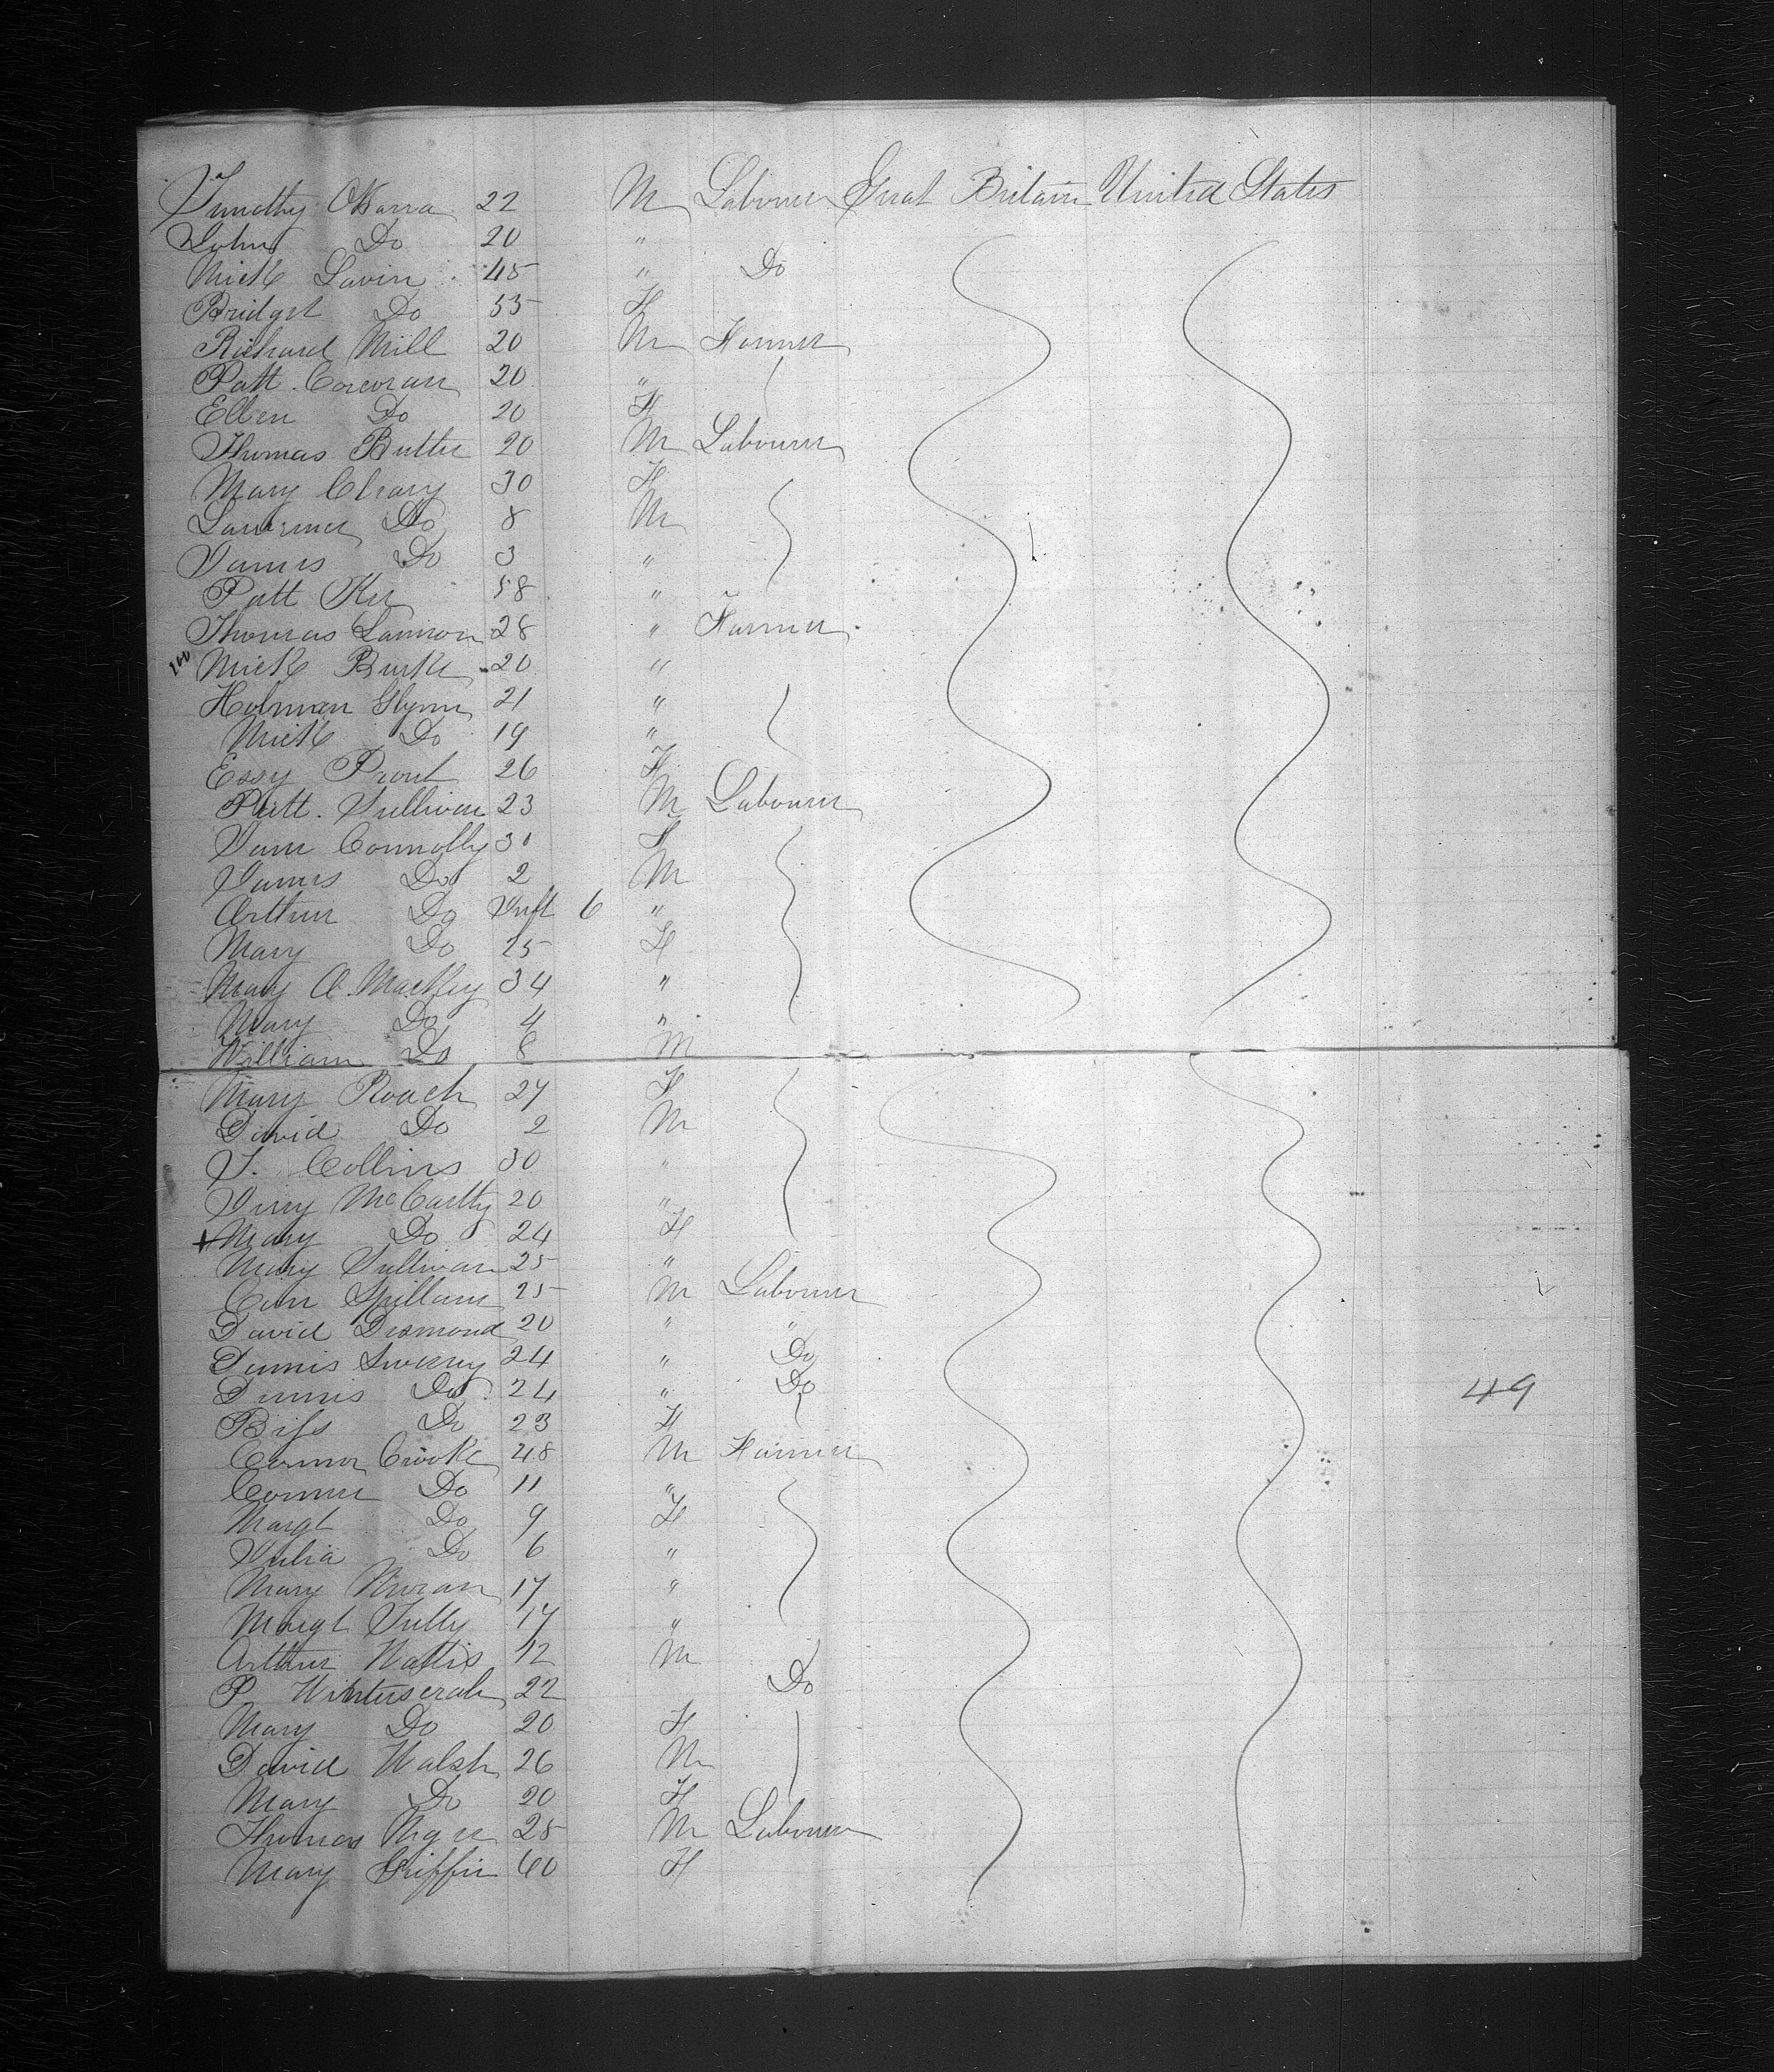 Timothy OHarra 22 M Labourer Great Britain United States
John Do 20 "
Mick Lavin 45 " Do
Bridget Do 55 F
Richard Mill 20 M Farmer
Patt. Corcoran 20 "
Ellen Do 20 F
Thomas Butler 20 M Labourer
Mary Cleary 30 F
Lawrence Do 8 M
James Do 3 "
Patt Ker 58 "
Thomas Lannon 28 " Farmer
100 Mick Burke 20 "
Holman Glynn 21 "
Mick Do 19 "
Essy Prout 26 F
Patt. Sullivan 23 M Labourer
Jane Connolly 30 F
James Do 2 M
Arthur Do Inft 6 "
Mary Do 25 F
Mary A. Mackey 34 "
Mary Do 4 "
William Do 8 M
Mary Roach 27 F
David Do 2 M
J. Collins 30 "
Jerry McCarthy 20 "
+ Mary Do 24 F
Mary Sullivan 25 "
Con Spillane 25 M Labourer
David Desmond 20 " "
Dennis Sweeny 24 " Do
Dennis Do 24 " Do
49
Bess Do 23 F
Connor Crooke 48 M Farmer
Connor Do 11 "
Margt Do 9 F
Julia Do 6 "
Mary Moran 17 "
Margt Tully 17 "
Arthur Wattis 12 M
P Do
22
Mary Do 20 F
David Walsh 26 M
Mary Do 20 F
Thomas 25 M Labourer
Mary Griffin 60 F